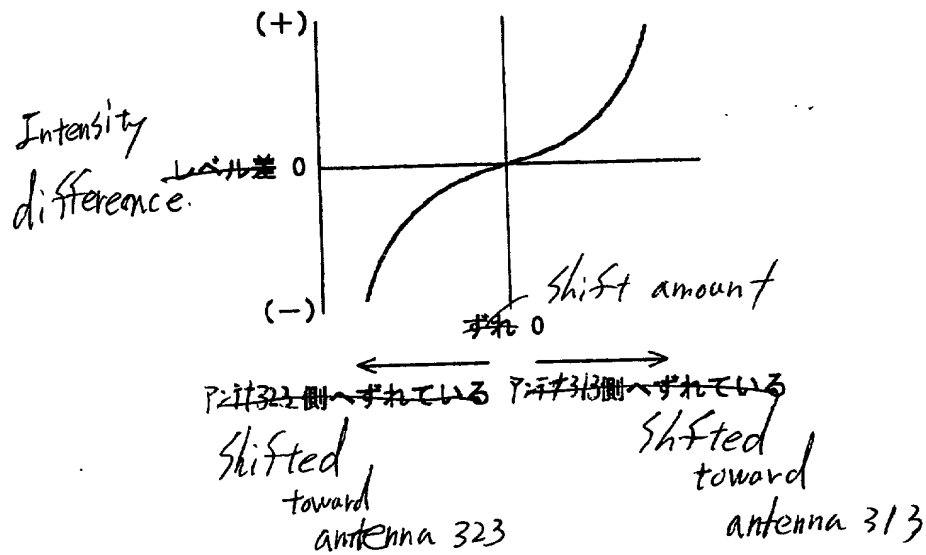 (+)
Intensity
difference.
レベル差 0
(-)
shift amount
ずれ 0
アンテナ323側へずれている アンテナ313側へずれている
Shifted
toward
antenna 323
Shfted
toward
antenna 313